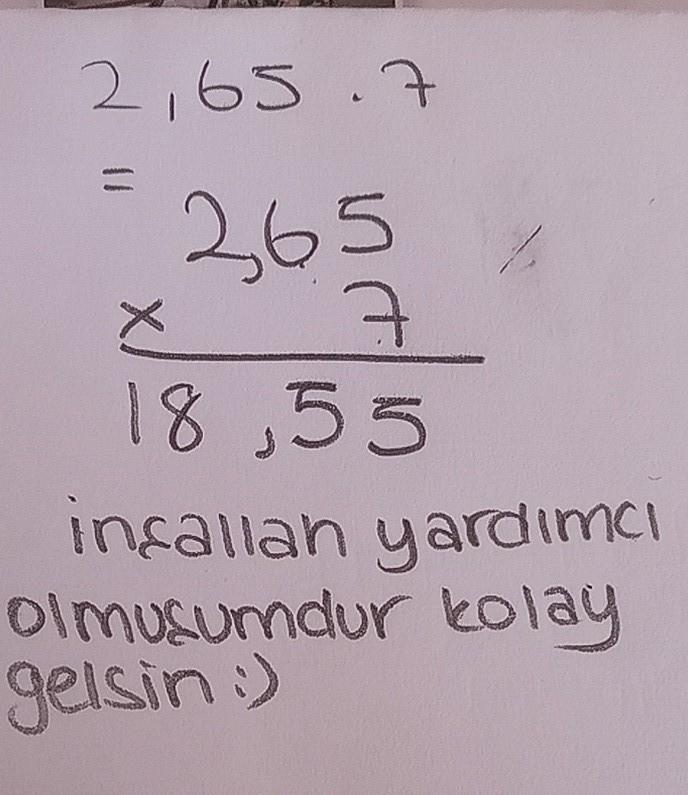 2,65 . 7
=
2,65
x 7
18,55
inşallah yardımcı
olmuşumdur kolay
gelsin :)